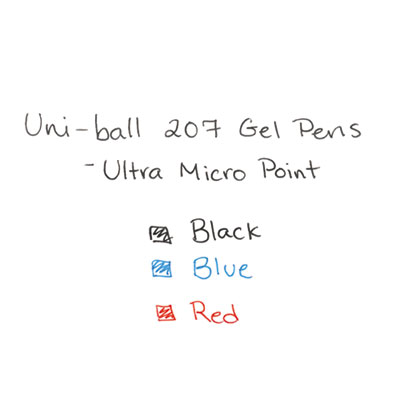 Uni-ball 207 Gel Pens
- Ultra Micro Point
Black
Blue
Red